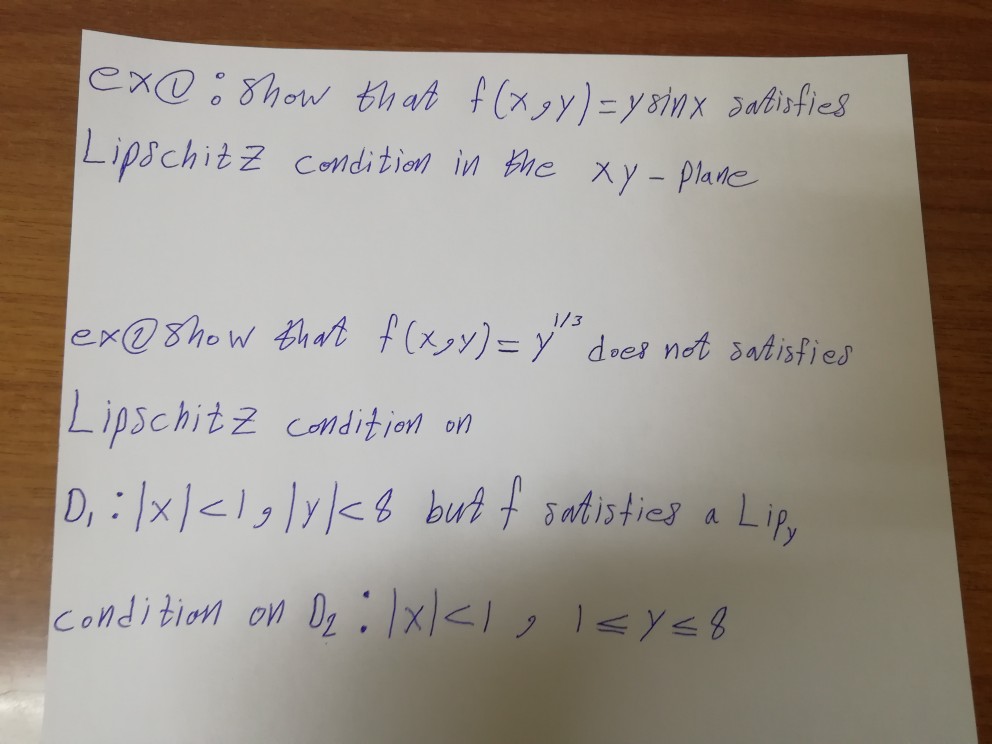 ex①: show that f(x,y)=y sinx satisfies
Lipschitz condition in the xy-plane
ex② show that f(x,y)=y^1/3 does not satisfies
Lipschitz condition on
D₁:|x|<1,|y|<8 but f satisfies a Lip_y
condition on D₂:|x|<1, 1≤y≤8